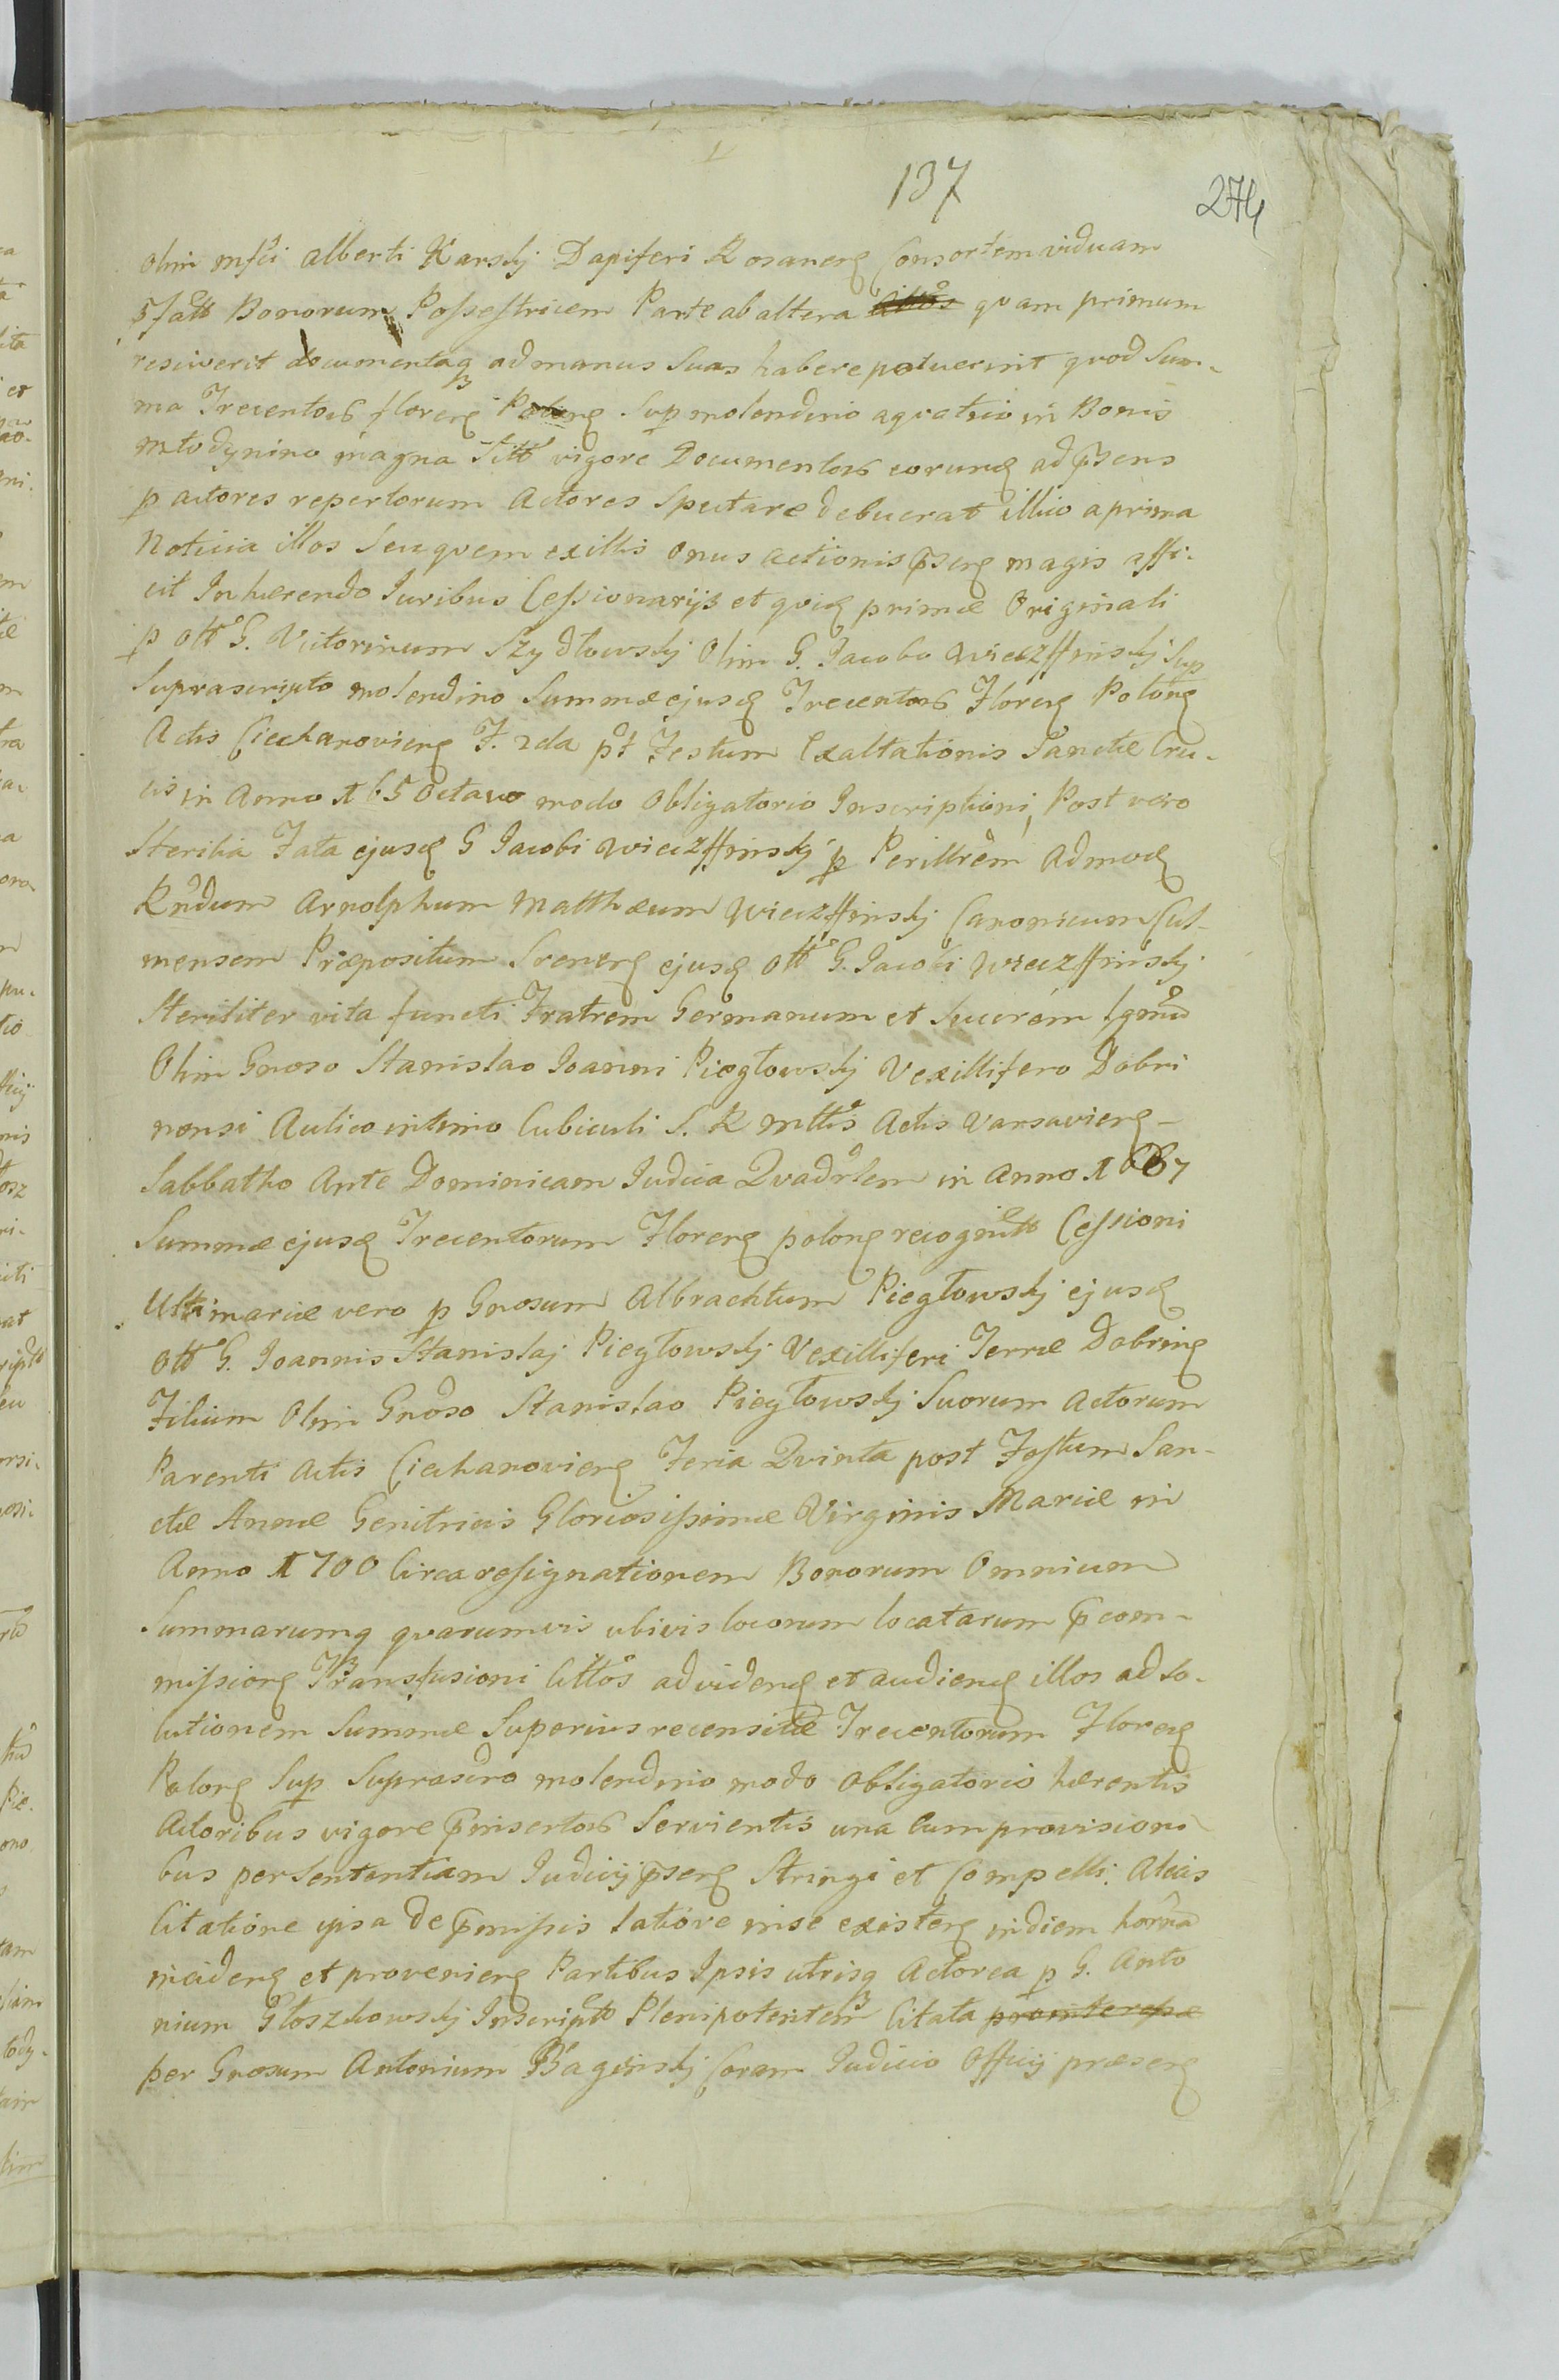 137
274
olim mfci Alberti Karskj Dapiferi Rosanens Consortem viduam
pfatt Bonorum Possestricem Parte ab altera quam primum
resciverit documentaq ad manus suas habere potuerint quod Sum-
ma Trecentor florens Polons Sup molendino aquatico in Bonis
młodynino magna sitt vigore Documentor eorund ad psens
p actores repertorum Actores Spectare debuerat illico a prima
Noticia illos seu quem ex illis onus actionis psens magis affi-
cit Inhærendo Iuribus Cessionarijs et quid primæ Originali
p ott G. Victorinum Szydłowskj Olim G. Jacobo Wieczffinskj Sup
Suprascripto molendino Summæ ejusd Trecentor Florens Polons
Actis Ciechanoviens F. 2da pt Festum Exaltationis Sanctæ Cru-
cis in Anno 165 octavo modo Obligatorio Inscriptioni, Post vero
Sterilia Fata ejusd G Jacobi Wieczffinskj p Perillrem Admod
Rndum Arnolphum Matthæum Wieczffinskj Canonicum Cul-
mensem Præpositum Srenens ejusd ott G. Jacobi Wieczffinskj
Steriliter vita functi Fratrem Germanum et Sucrem
Olim Gnoso Stanislao Joanni Piegłowskj Vexillifero Dobri
nensi Aulico intimo Cubiculi S. R mttis Actis Varsaviens
Sabbatho Ante Dominicam Judica Quadrlem in Anno 1667
Summæ ejusd Trecentorum Florens polons recognitt Cessioni
Ultimariæ vero p Gnosum Albrachtum Piegłowskj ejusd
ott G. Joannis Stanislaj Piegłowskj Vexilliferi Terræ Dobrins
Filium Olim Gnoso Stanislao Piegłowskj Suorum Actorum
Parenti Actis Ciechanoviens Feria Quinta post Festum San-
ctæ Annæ Genitricis Gloriosissimæ Virginis Mariæ in
Anno 1700 Circa resignationem Bonorum Omnium
Summarumq quarumvis ubivis locorum locatarum pcom-
missions Transfusioni Cittos ad vidend et audiend illos ad so-
lutionem Summæ Superius recensitæ Trecentorum Florens
Polons Sup Suprascro molendino modo Obligatorio hærentis
Actoribus vigore pinsertor Servientis una cum provisioni
bus per Sententiam Judicij psens Stringi et Compelli. Alias
Citatione ipsa de pmissis latiore in se existens in diem hornam
incidens et proveniens Partibus Ipsis utrisq Actorea p G. Anto
nium Głoszkowskj Inscriptt Plenipotentem Citata
per Gnosum Antonium Baginskj Coram Judicio Officij præsens